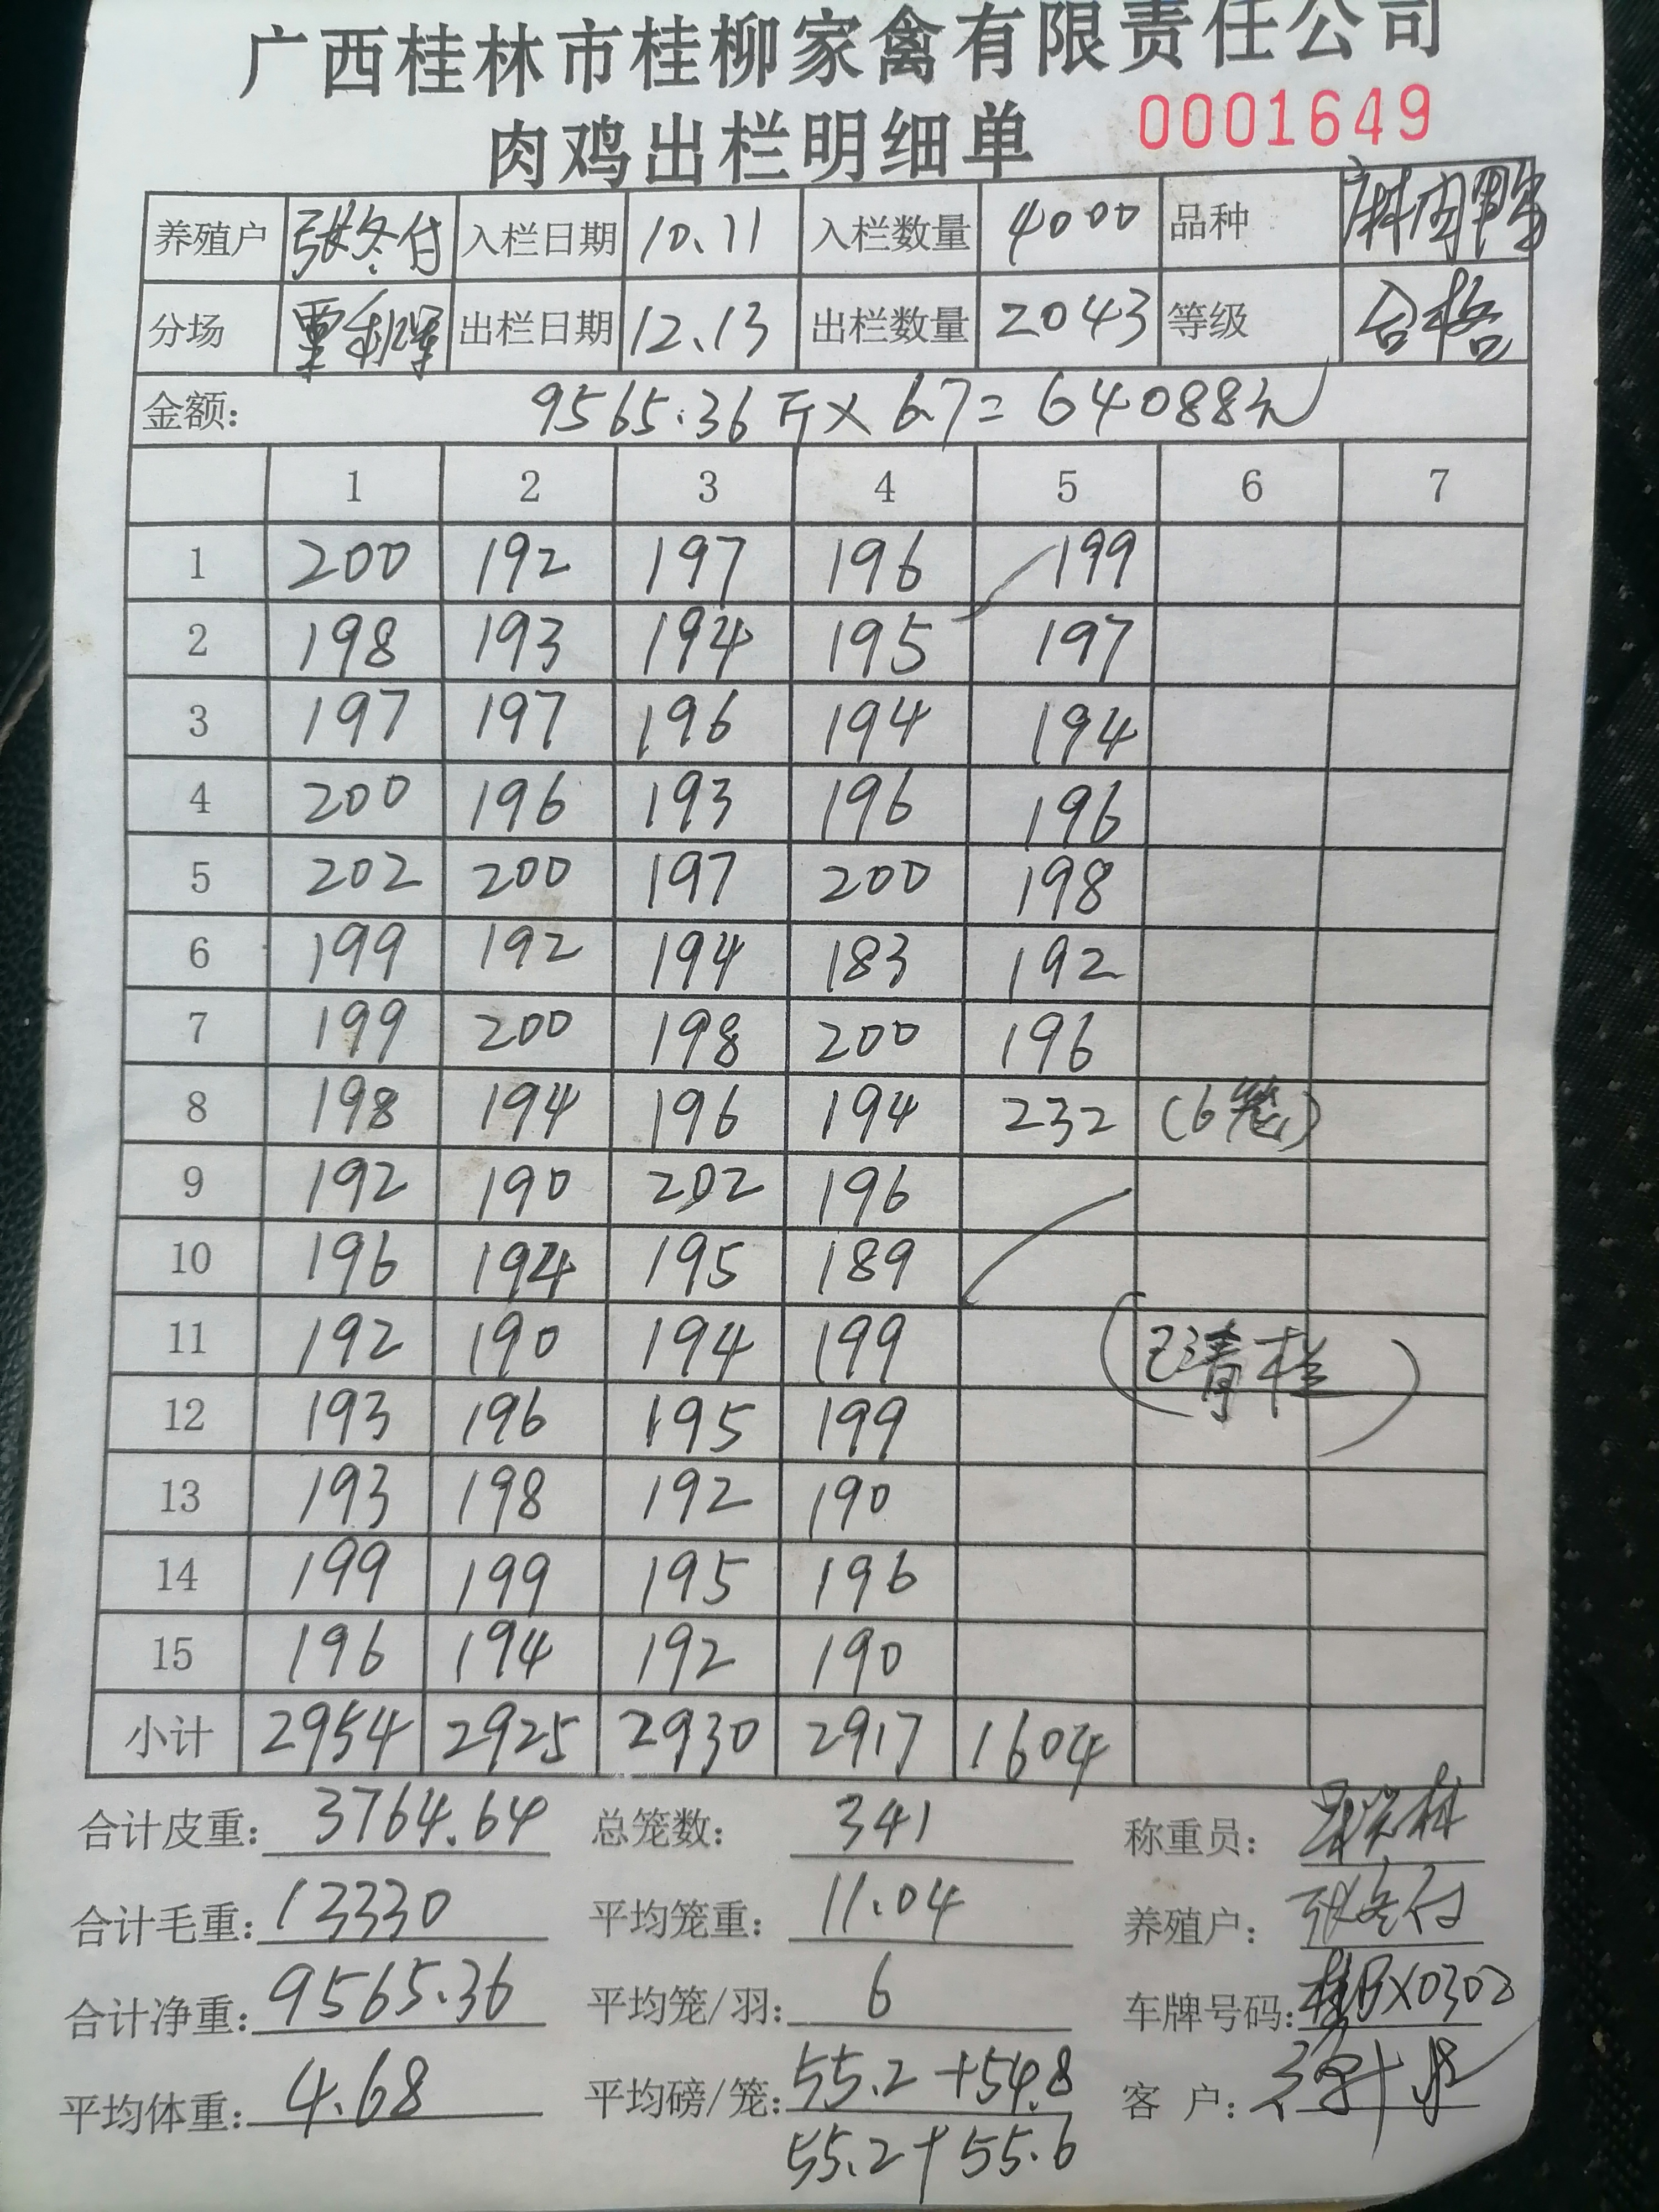 广西桂林市桂柳家禽有限责任公司
肉鸡出栏明细单 0001649
养殖户 张冬付 入栏日期 10.11 入栏数量 4000 品种
分场 出栏日期 12.13 出栏数量 2043 等级 合格
金额: 9565.36斤×6.7=64088元
1 2 3 4 5 6 7
1 200 192 197 196 199
2 198 193 194 195 197
3 197 197 196 194 194
4 200 196 193 196 196
5 202 200 197 200 198
6 199 192 194 183 192
7 199 200 198 200 196
8 198 194 196 194 232 (6笼)
9 192 190 202 196
10 196 194 195 189
11 192 190 194 199 (已清栏)
12 193 196 195 199
13 193 198 192 190
14 199 199 195 196
15 196 194 192 190
小计 2954 2925 2930 2917 1604
合计皮重: 3764.64 总笼数: 341 称重员:
合计毛重: 13330 平均笼重: 11.04 养殖户: 张冬付
合计净重: 9565.36 平均笼/羽: 6 车牌号码:
平均体重: 4.68 平均磅/笼: 55.2+54.8 客户:
55.2+55.6